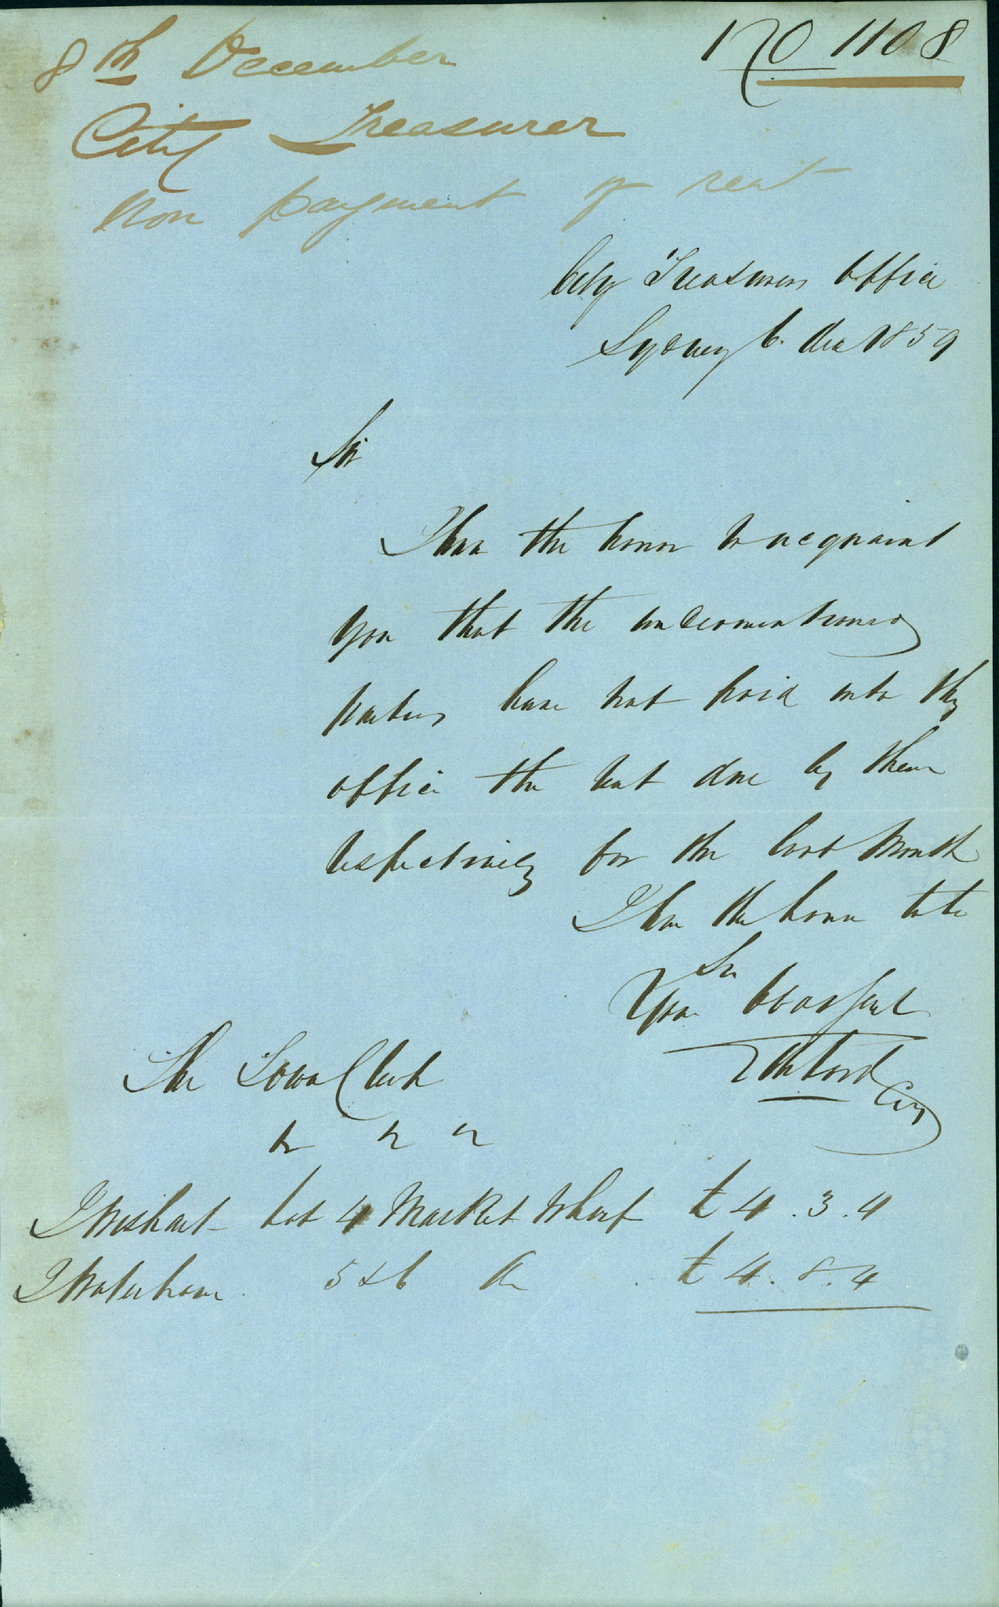 No 1108
8th December
City Treasurer
Non payment of rent
City Treasurers Office
Sydney 6. Dec 1859
Sir
I have the honor to acquaint
you that the undermentioned
parties have not paid into this
office the rent due by them
respectively for the last Month
I have the honor to be
Sir
Your Obdt Servt
The Town Clerk
J Wishart Lot 4 Market Wharf £4.3.4
5 & 6 Do £4.8.4